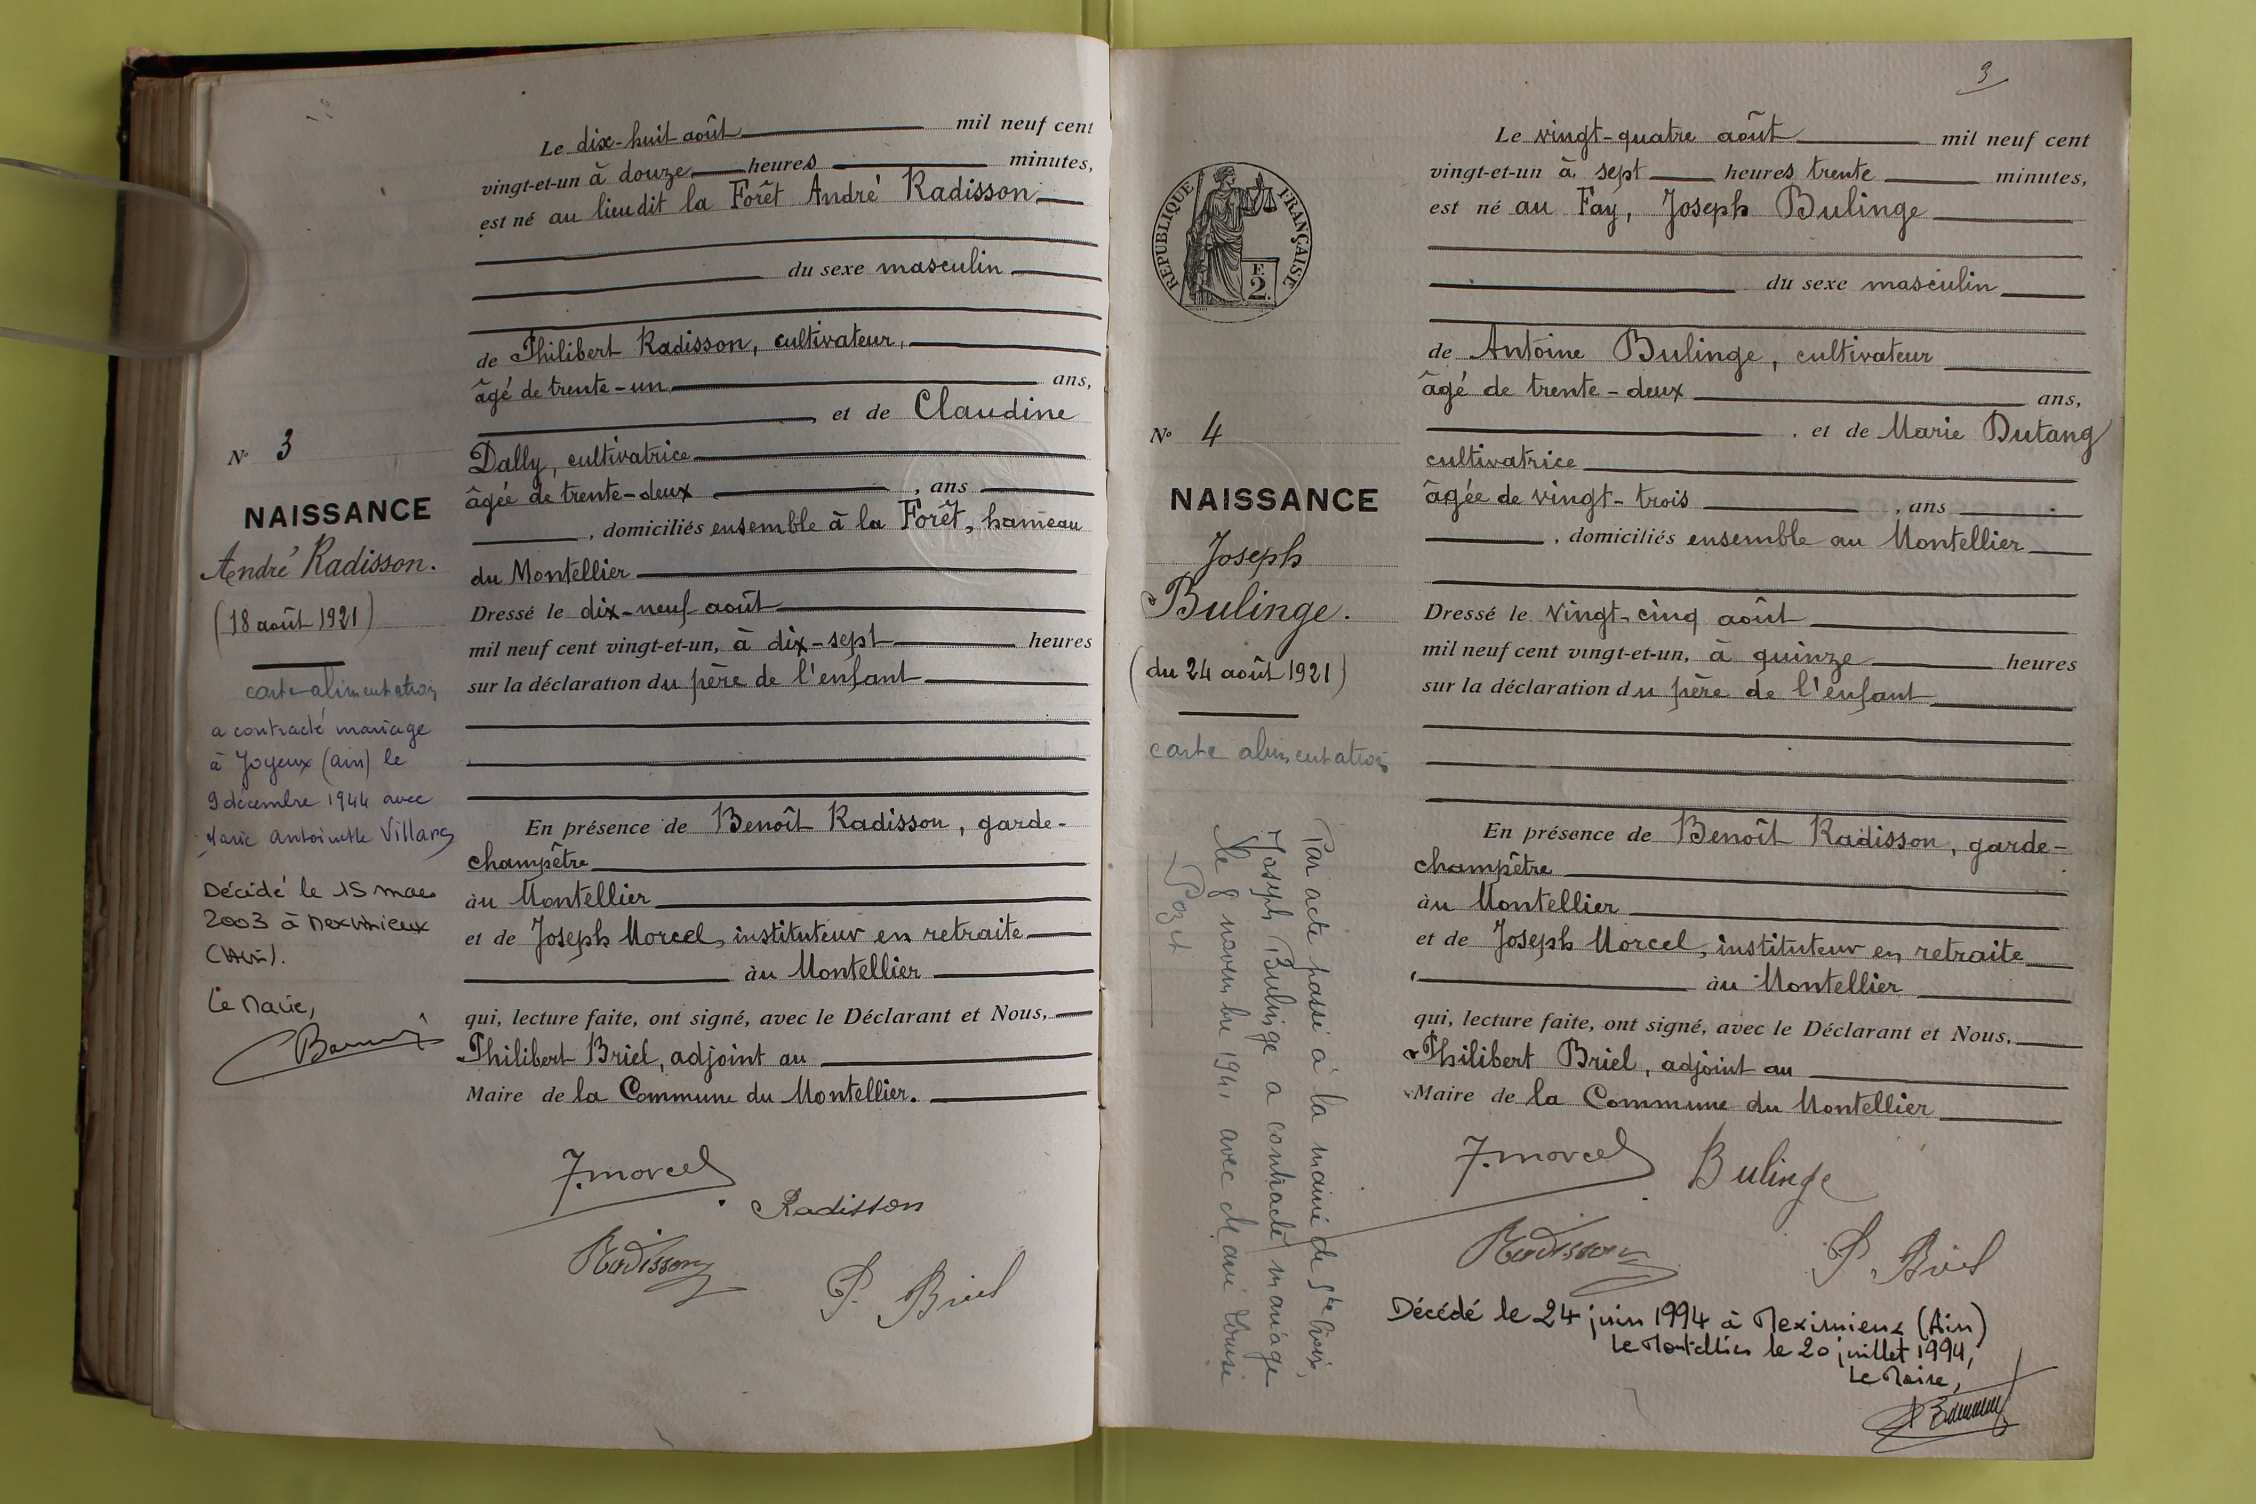 Le dix-huit août mil neuf cent
vingt-et-un à douze heures minutes,
est né au lieu dit la Forêt André Radisson
du sexe masculin
de Philibert Radisson, cultivateur,
âgé de trente-un ans,
, et de Claudine
Dally, cultivatrice
âgée de trente-deux , ans
, domiciliés ensemble à la Forêt, hameau
du Montellier
Dressé le dix-neuf août
mil neuf cent vingt-et-un, à dix-sept heures
sur la déclaration du père de l'enfant
En présence de Benoît Radisson, garde-
champêtre
au Montellier
et de Joseph Morcel, instituteur en retraite
au Montellier
qui, lecture faite, ont signé, avec le Déclarant et Nous,
Philibert Briel, adjoint au
Maire de la Commune du Montellier.
J. Morcel
Radisson
Radisson
P. Briel
N° 3
NAISSANCE
André Radisson.
(18 août 1921)
carte alimentation
a contracté mariage
à Joyeux (ain) le
9 décembre 1944 avec
Marie Antoinette Villard
Décédé le 15 mars
2003 à Meximieux
(Ain).
Le Maire,
3
Le vingt-quatre août mil neuf cent
vingt-et-un à sept heures trente minutes,
est né au Fay, Joseph Bulinge
du sexe masculin
de Antoine Bulinge, cultivateur
âgé de trente-deux ans,
, et de Marie Dutang
cultivatrice
âgée de vingt-trois , ans
, domiciliés ensemble au Montellier
Dressé le vingt-cinq août
mil neuf cent vingt-et-un, à quinze heures
sur la déclaration du père de l'enfant
En présence de Benoît Radisson, garde-
champêtre
au Montellier
et de Joseph Morcel, instituteur en retraite
au Montellier
qui, lecture faite, ont signé, avec le Déclarant et Nous,
Philibert Briel, adjoint au
Maire de la Commune du Montellier
J. Morcel
Bulinge
Radisson
P. Briel
Décédé le 24 juin 1994 à Meximieux (Ain)
Le Montellier le 20 juillet 1994,
Le Maire,
RÉPUBLIQUE FRANÇAISE
F.
2.
N° 4
NAISSANCE
Joseph
Bulinge.
(du 24 août 1921)
carte alimentation
Par acte passé à la mairie de Ste Croix,
Joseph Bulinge a contracté mariage
le 8 novembre 1941 avec Marie Louise